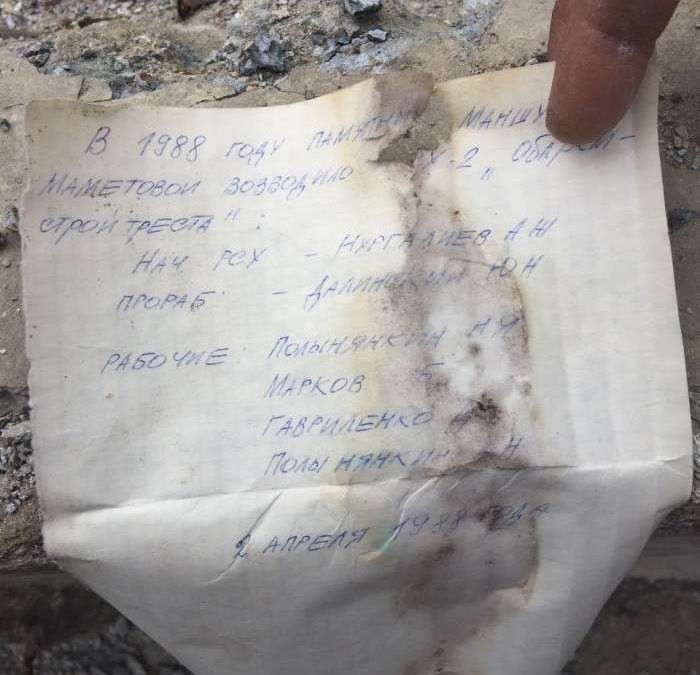 В 1988 ГОДУ ПАМЯТНИ МАНШУ
МАМЕТОВОЙ ВОЗВОДИЛО Х-2 „ ОБЛРЕМ-
СТРОЙТРЕСТА " :
НАЧ. РСУ - НУРГАЛИЕВ АЖ
ПРОРАБ - ДАЛИНСКИЙ ЮН
РАБОЧИЕ: ПОЛЫНЯНКИН НЯ
МАРКОВ Б
ГАВРИЛЕНКО
ПОЛЫНЯНКИН Н
2 АПРЕЛЯ 1988 ГОДА